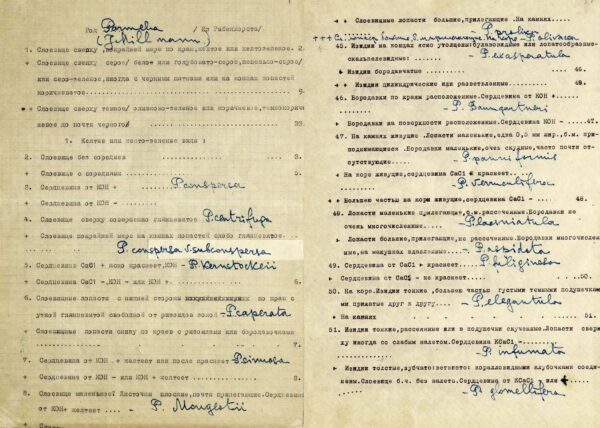 Род Parmelia / Из Рабенгорста/
(J. Hillmann)
1. Слоевище сверху ,покрайней мере по краю,желтое или желтозеленое. 2.
+ Слоевище сверху серое/ бело- или голубовато-серое,пепельно-серое/
или серо-зеленое,иногда с черными пятнами или на концах лопастей
коричневатое 9.
+ +Слоевище сверху темное/ оливково-зеленое или коричневое,темнокорич
невое до почти черного/ 33.
1. Желтые или желто-зеленые виды :
2. Слоевище без соредиев 3.
+ Слоевище с соредиями 5.
3. Сердцевина от КОН + P. conspersa
Сердцевина от КОН -
4. Слоевище сверху совершенно гладкое P. centrifuga
Слоевище покрайней мере на концах лопастей слабо
P. conspersa v. subconspersa
5. Сердцевина CaCl + ясно краснеет,КОН - P. Kernstockii
+ Сердцевина от CaCl -,КОН - или КОН + 6.
6. Слоевищные лопасти с нижней стороны по краю с
узкой свободной от ризоидов зоной - P. caperata
+ Слоевищные лопасти снизу до края с ризоидами или бородавочками
7.
7. Сердцевина от КОН + желтеет или после краснеет P. sinuosa
+ Сердцевина от КОН - или КОН + желтеет 8.
8. Слоевище маленькое! Листочки плоские,почти прилегающие.Сердцевина
от КОН+ желтеет - P. Mougeotii
+ + Слоевищные лопасти большие,прилегающие .На камнях
P. prolixa
на коре - P. olivacea
45. Изидии на концах ясно утолщены:булавовидные или лопатообразные-
P. exasperatula
+ Изидии бородавчатые 46.
+ + Изидии цилиндрические или разветвленные 49.
46. Бородавки по краям расположенные.Сердцевина от КОН +
- P. Baumgartneri
Бородавки на поверхности расположенные.Сердцевина КОН - 47.
47. На камнях живущие .Лопасти маленькие,едва 0,5 мм шир.,б.м. при-
поднимающиеся .Бородавки маленькие,очень скудные,часто почти от-
сутствующие. - P. panniformis
+ На коре живущие,сердцевина CaCl + краснеет.
- P. verruculifera
+ Большею частью на коре живущие,сердцевина CaCl - 48.
48. Лопасти маленькие прилегающие,б.м.рассеченные.Бородавки не
очень многочисленные. - P. laciniatula
Лопасти большие,прилегающие,не рассеченные.Бородавки многочислен
ные,на макушках вдавленные. - P. aspidota
49. Сердцевина от CaCl + краснеет. P. fuliginosa
+ Сердцевина от CaCl - не краснеет 50.
50. На коре.Изидии тонкие ,большею частью густыми темными подушечками
прижатые друг к другу - P. elegantula
+ На камнях 51.
51. Изидии тонкие,рассеянные или в подушечки скученные.Лопасти свер
ху иногда со слабым налетом.Сердцевина KCaCl -
- P. infumata
+ Изидии толстые,
Слоевище б.ч. без налета.Сердцевина от KCaCl или +
- P. glomellifera